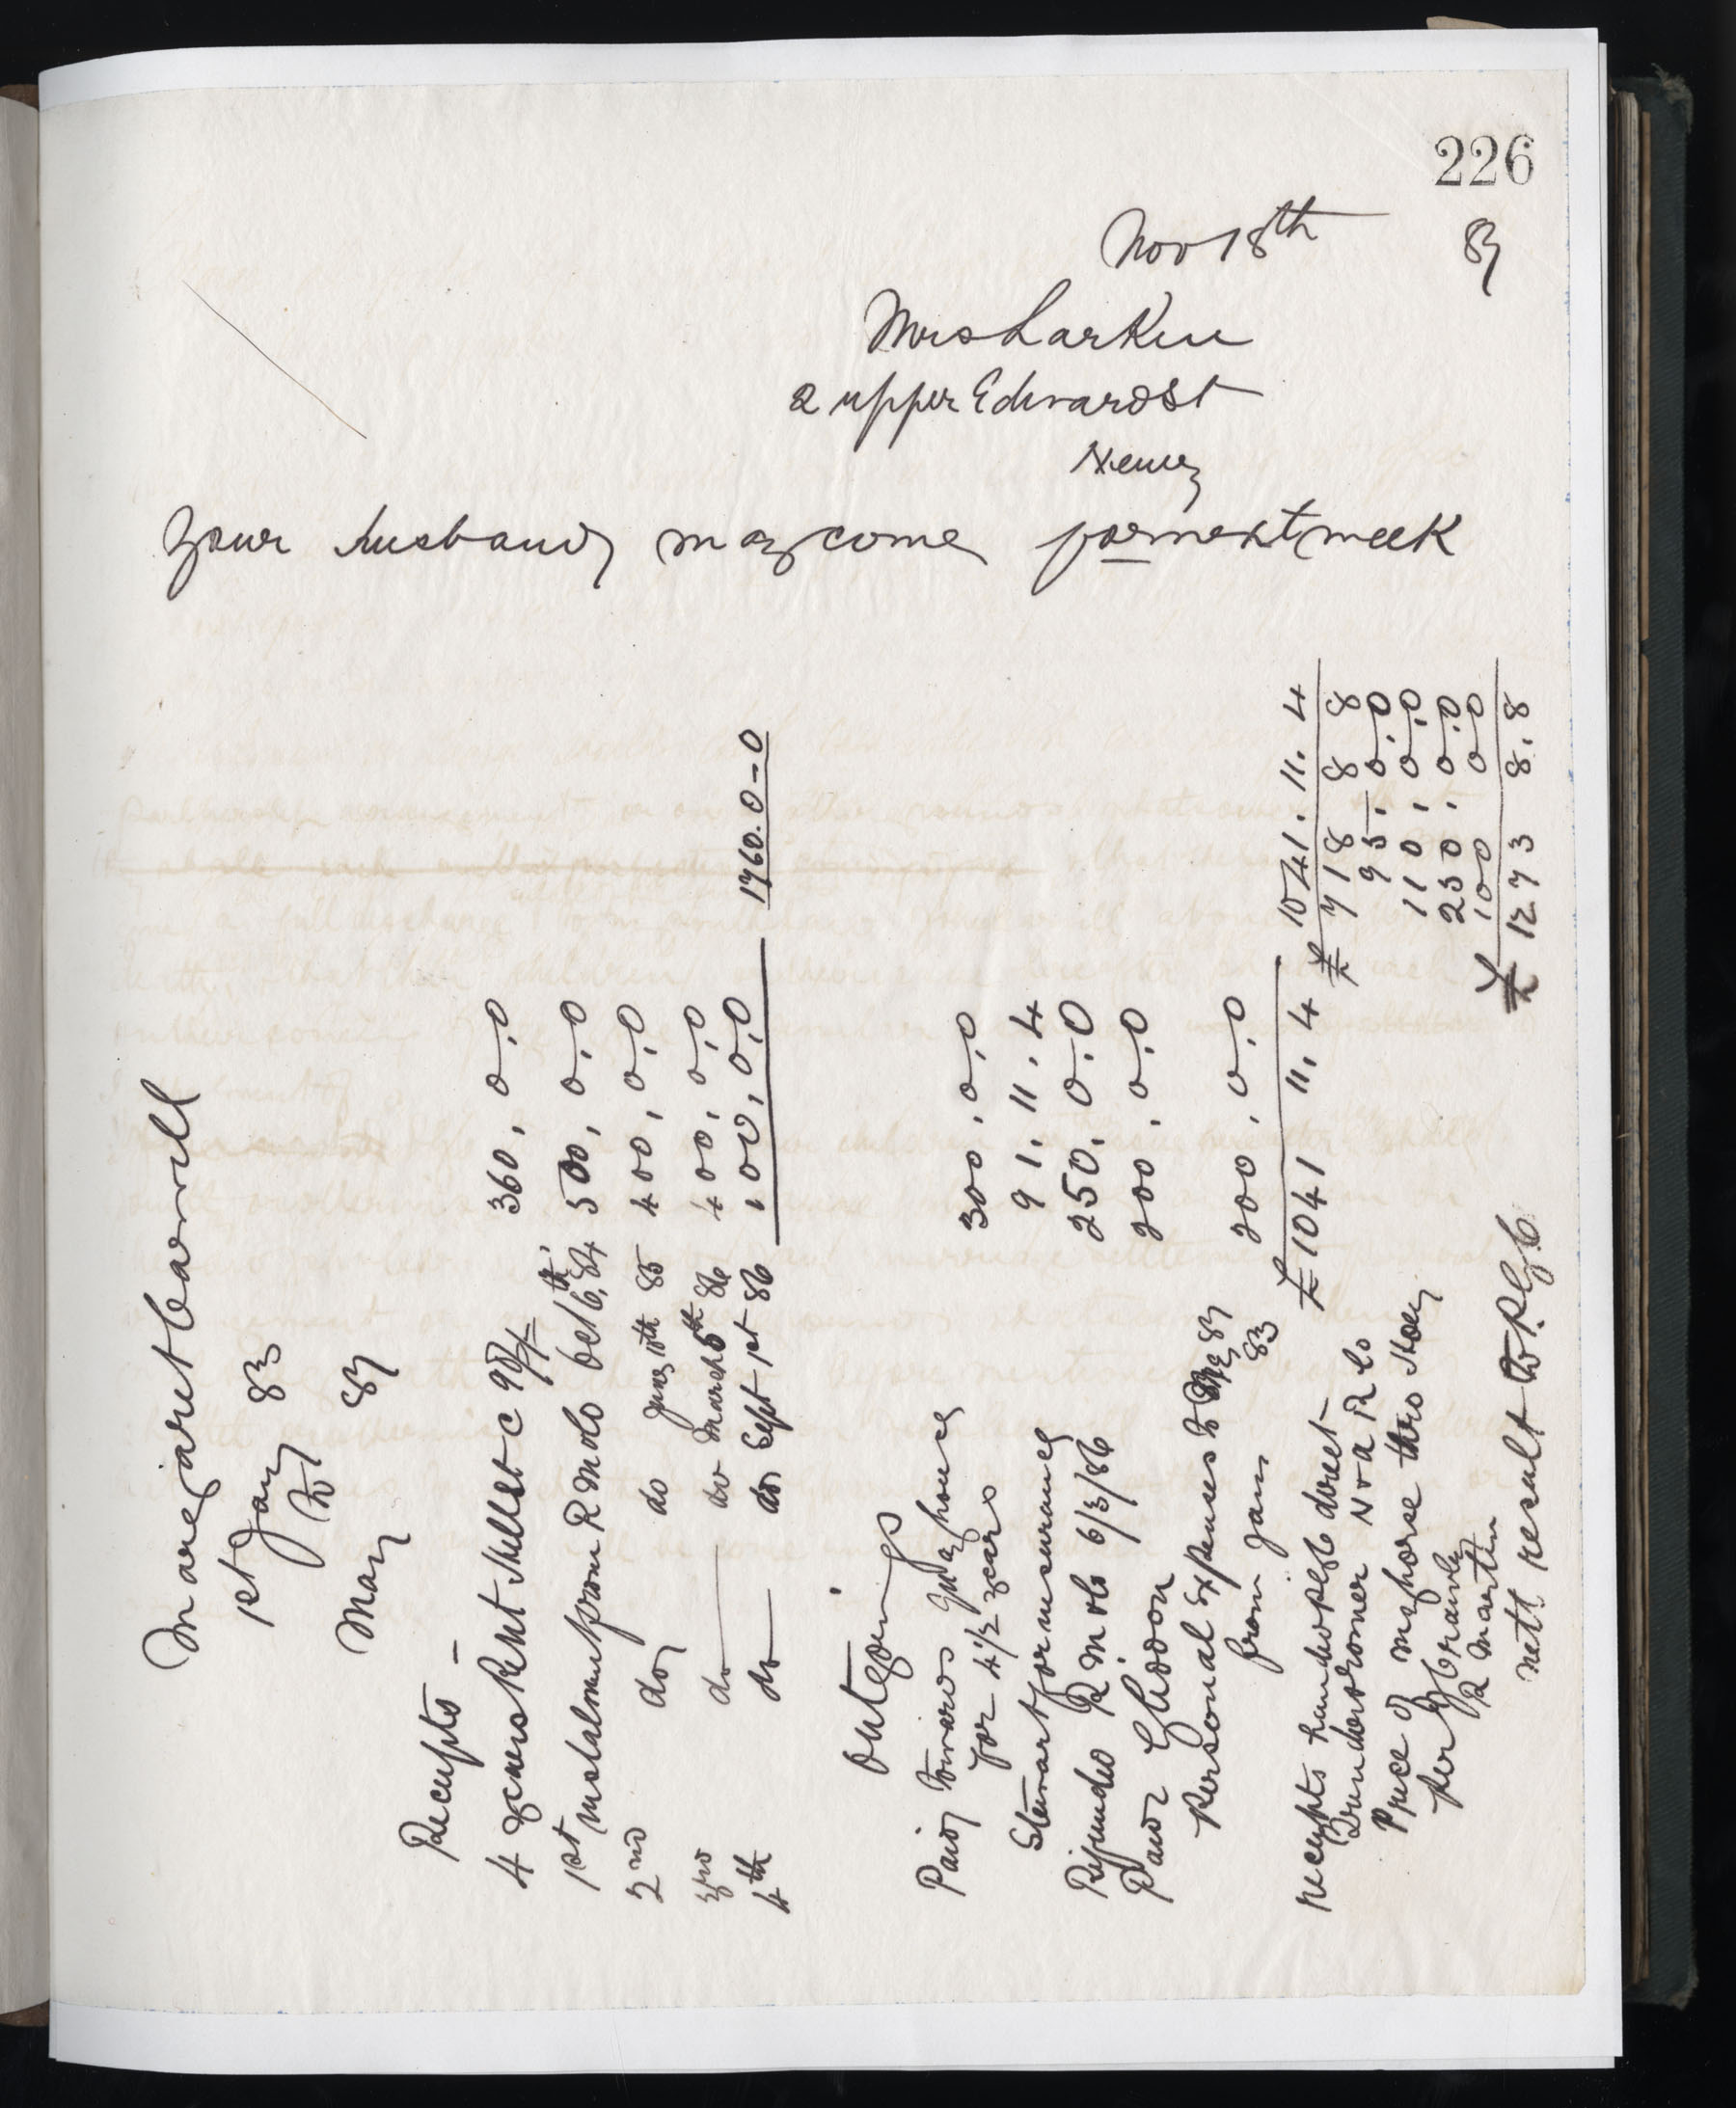 226
Nov 18th 87
Mrs Larkin
2 upper Edward St
Newry
Your husband may come for next week
Margaret Carvill
1st Jany 83
to
May 87
Receipts —
4 years Rent Millst C 90£ 360, 0.0
1st instalment from R M & Co Oct 6th, 84 500, 0.0
2nd do do June 10th 85 400, 0.0
3rd do do March 5th 86 400, 0.0
4th do do Sept 1st 86 100, 0.0
1760.0-0
Outgoings
Paid towards house
for 4½ years 300, 0.0
Stewart for insurance 91. 11. 4
Refunded R M & Co 6/3/86 250. 0.0
Paid Gliddon 200. 0.0
Personal Expenses to May 87
from Jany 83 200, 0.0
£1041 11. 4 1041. 11. 4
£ 718 8 8
receipts handed direct 95. 0.0
N & A R Co 110, 0.0
Price of my horse thro Hoey 250. 0.0
per
R Martin 100 0 0
nett result to £ 1273 8.8